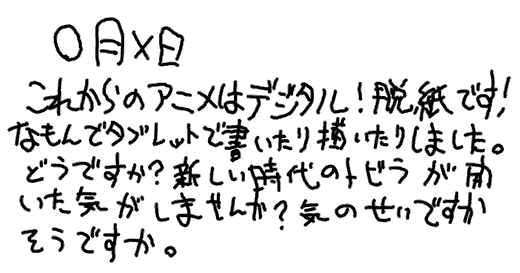 〇月×日
これからのアニメはデジタル！脱、紙です！
なもんでタブレットで書いたり描いたりしました。
どうですか？新しい時代のトビラが開
いた気がしませんか？気のせいですか
そうですか。